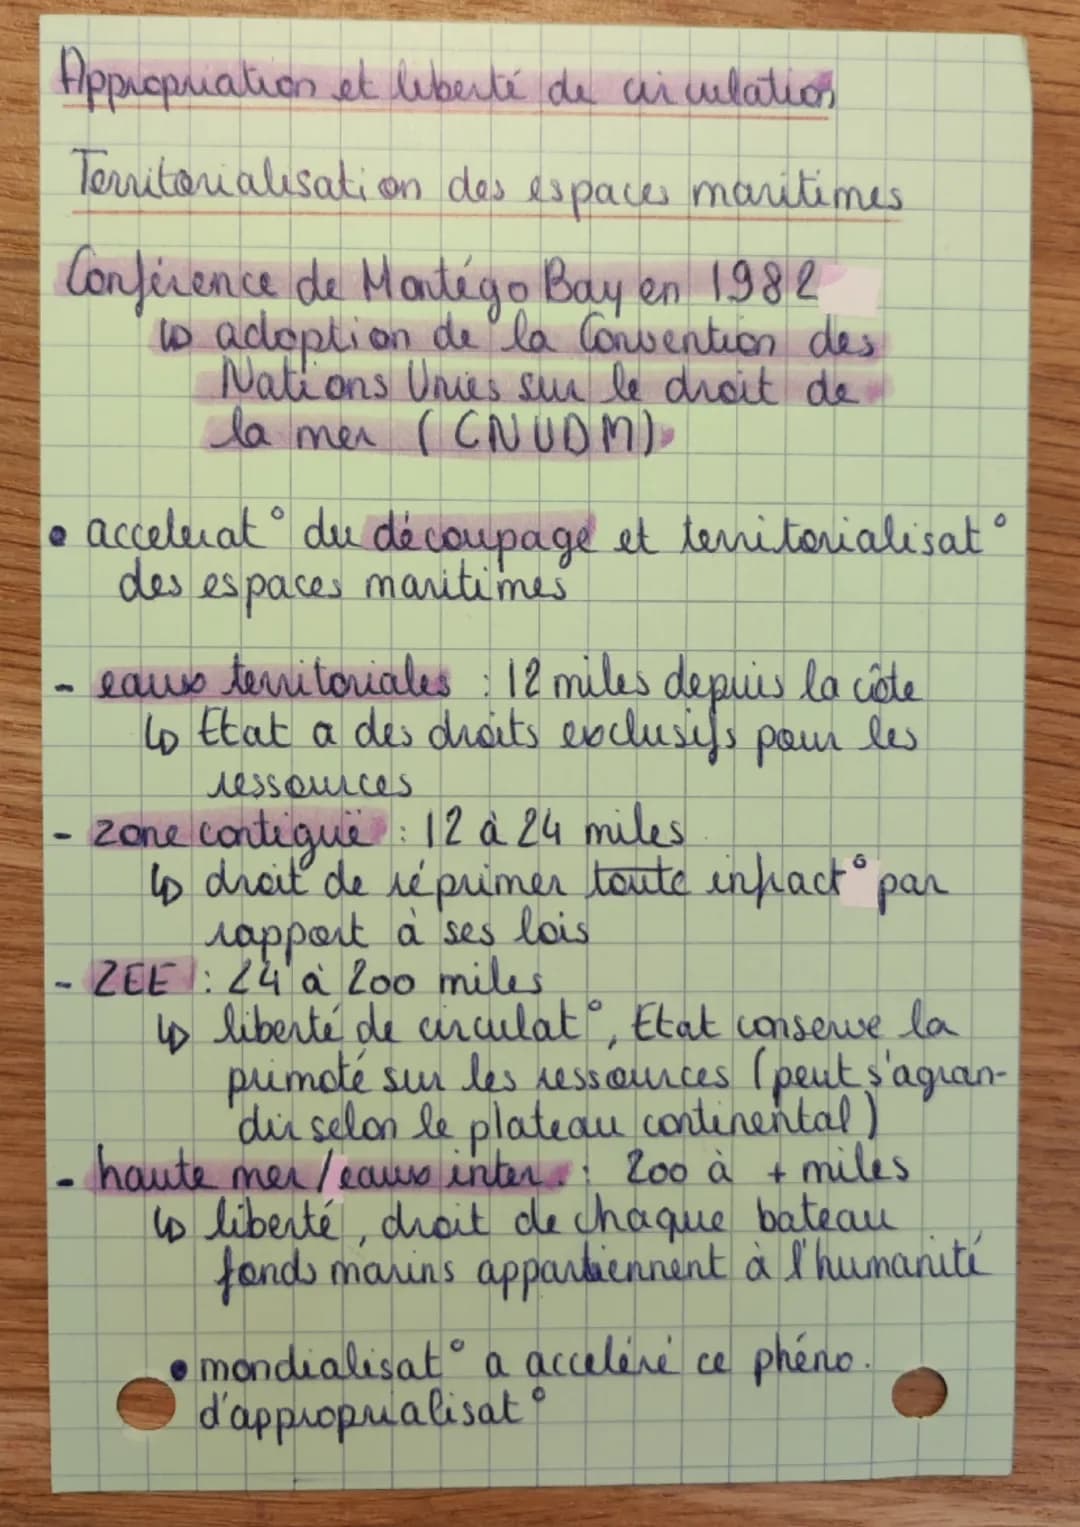 Appropriation et liberté de circulation
Territorialisation des espaces maritimes
Conférence de Montégo Bay en 1982
↳ adoption de la Convention des
Nations Unies sur le droit de
la mer (CNUDM)
• accelerat° du découpage et territorialisat°
des espaces maritimes
- eaux territoriales : 12 miles depuis la côte
↳ Etat a des droits exclusifs pour les
ressources
- zone contiguë : 12 à 24 miles
↳ droit de réprimer toute infract° par
rapport à ses lois
- ZEE : 24 à 200 miles
↳ liberté de circulat°, Etat conserve la
primoté sur les ressources (peut s'agran-
dir selon le plateau continental)
- haute mer/eaux inter. : 200 à + miles
↳ liberté, droit de chaque bateau
fonds marins appartiennent à l'humanité
• mondialisat° a acceléré ce phéno.
d'approprialisat°